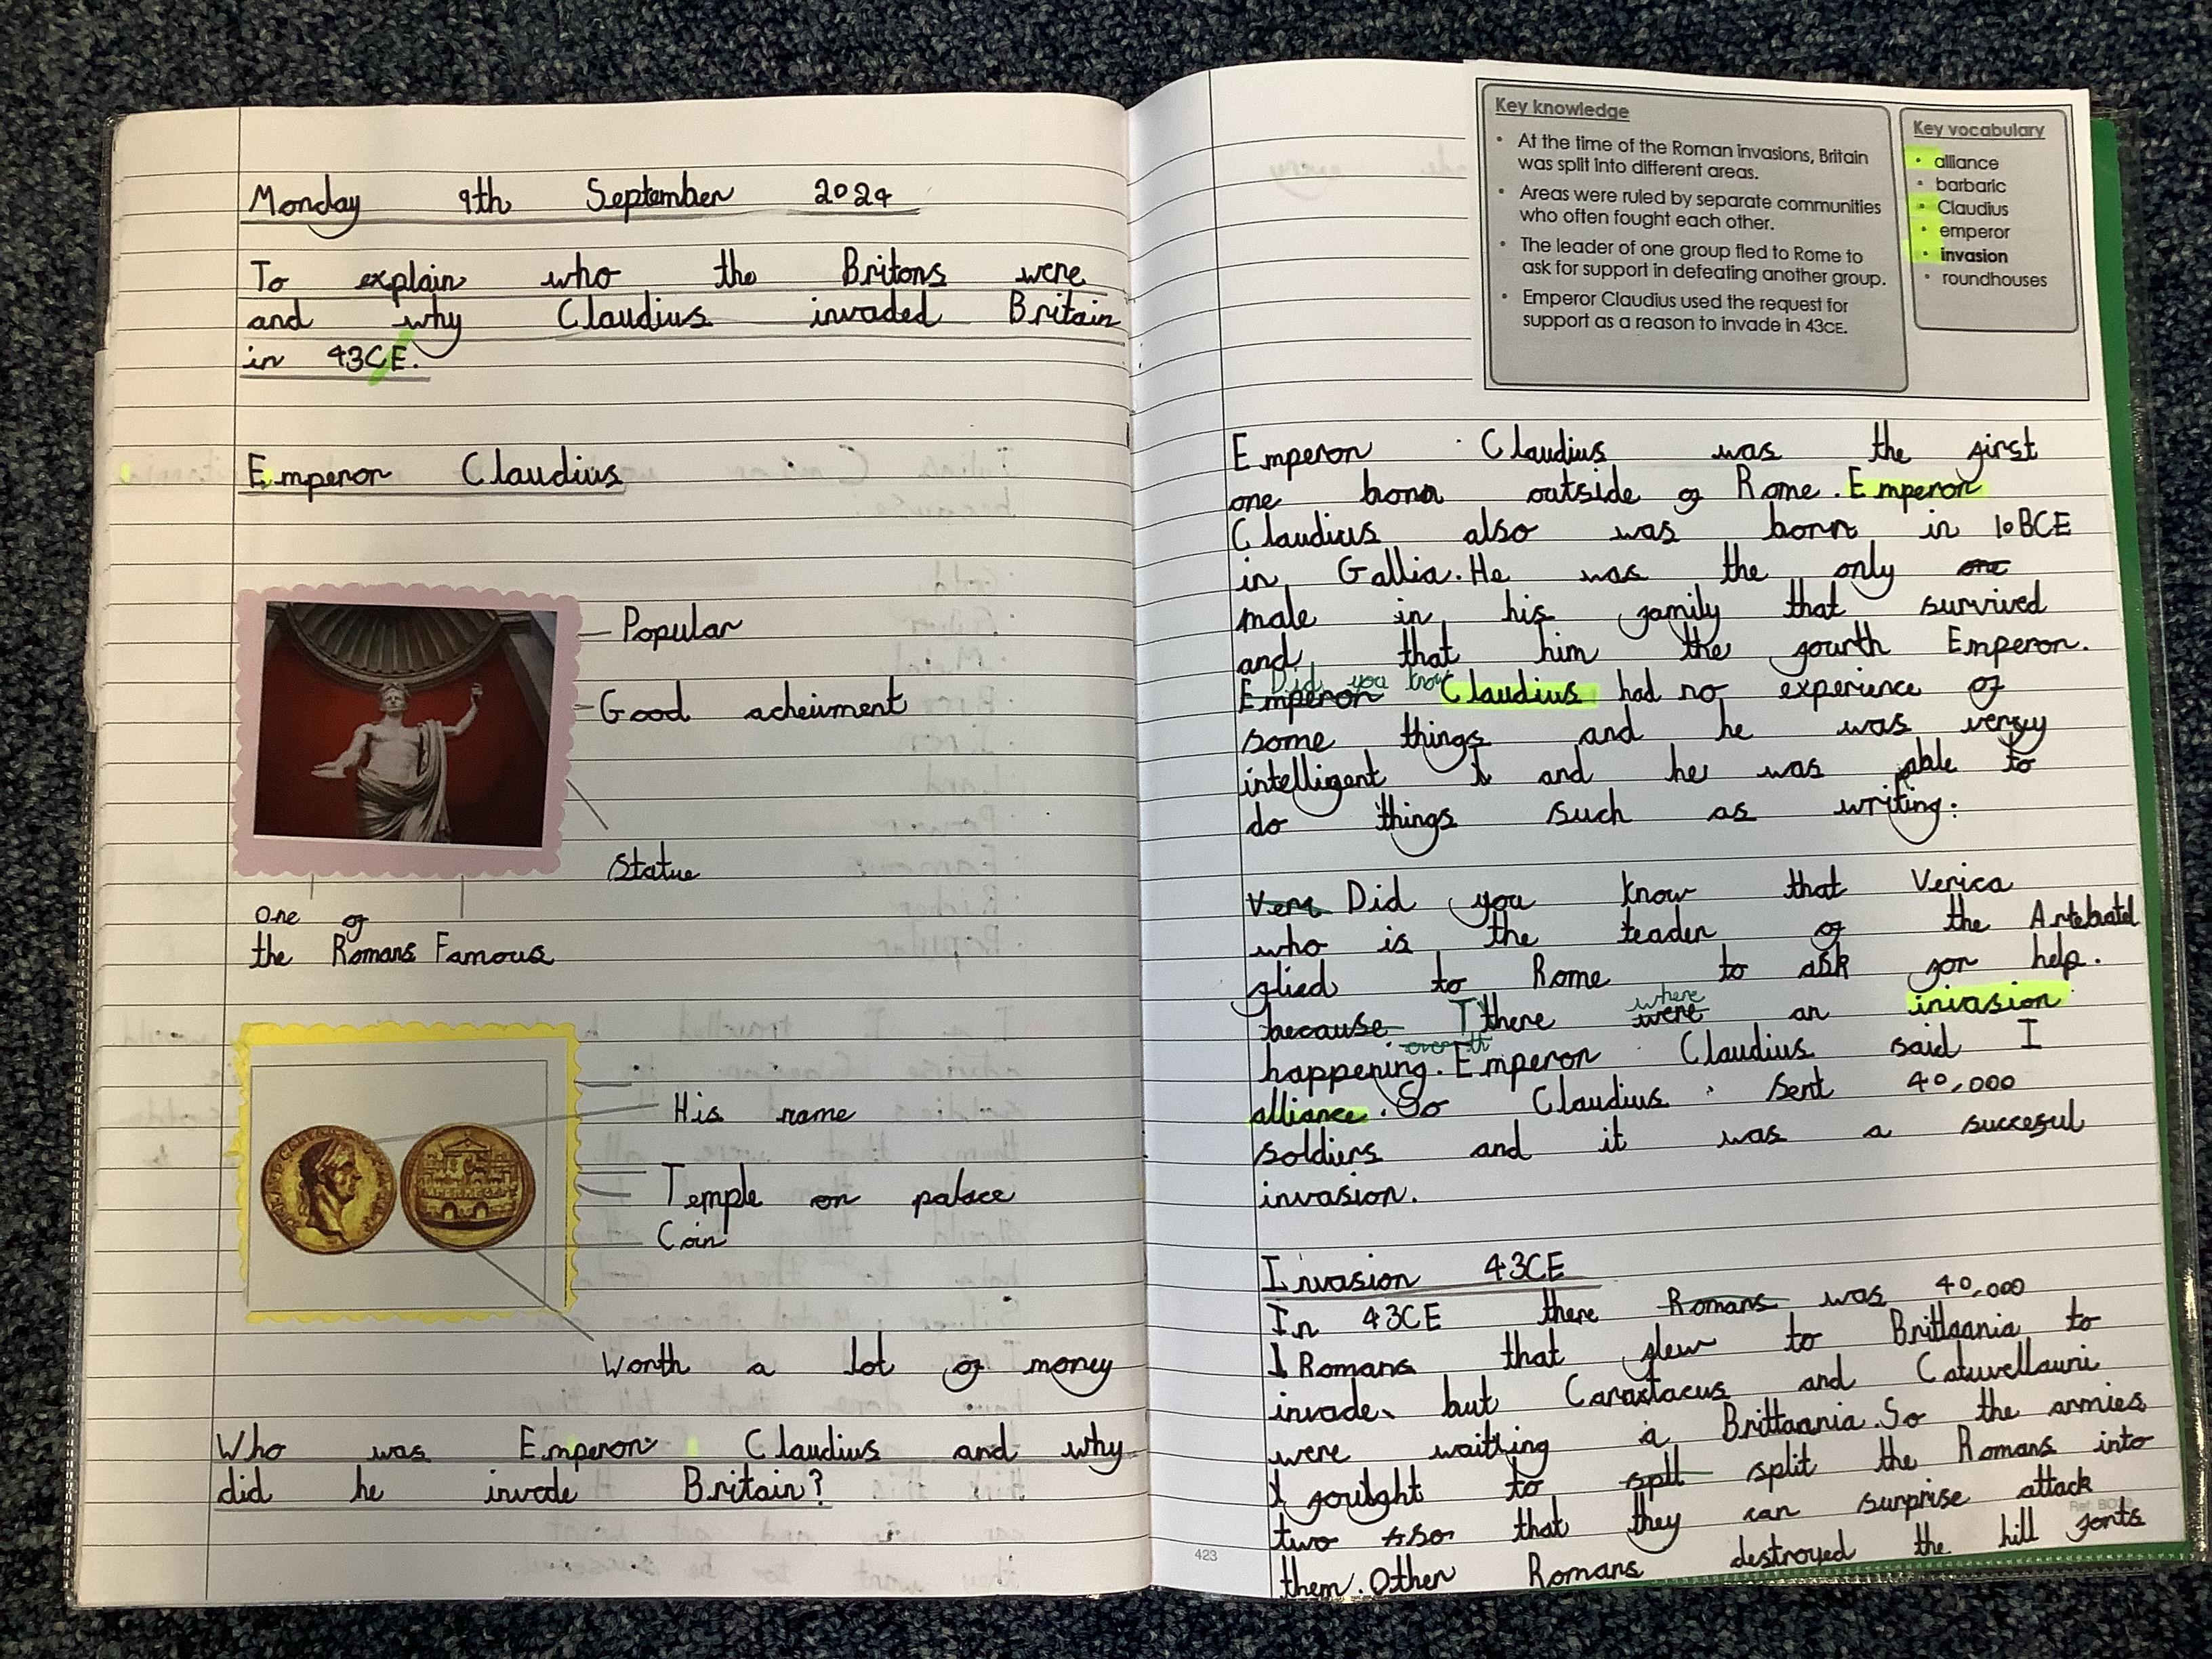 Monday 9th September 2024
To explain who the Britons were
and why Claudius invaded Britain
in 43CE.
Emperor Claudius
Popular
Good acheivment
Statue
One of
the Romans Famous
His name
Temple or palace
Coin
Worth a lot of money
Who was Emperor Claudius and why
did he invade Britain?
Key knowledge
• At the time of the Roman invasions, Britain
was split into different areas.
• Areas were ruled by separate communities
who often fought each other.
• The leader of one group fled to Rome to
ask for support in defeating another group.
• Emperor Claudius used the request for
support as a reason to invade in 43CE.
Key vocabulary
• alliance
• barbaric
• Claudius
• emperor
• invasion
• roundhouses
Emperor Claudius was the first
one born outside of Rome. Emperor
Claudius also was born in 10BCE
in Gallia. He was the only one
male in his family that survived
and that him the fourth Emperor.
Did you know
Emperor Claudius had no experience of
some things and he was veryy
intelligent and he was able to
do things such as writing.
Vera Did you know that Verica
who is the leader of the
flied to Rome to ask for help.
because There were where an invasion
happening. Emperor Claudius said I
alliance. So Claudius sent 40,000
soldiers and it was a succesul
invasion.
Invasion 43CE
In 43CE there Romans was 40,000
Romans that flew to Brittaania to
invade, but Caratacus and Catuvellauni
were waiting a Brittaania. So the armies
to spll split the Romans into
two so that they can surprise attack
them. Other Romans destroyed the hill forts
423